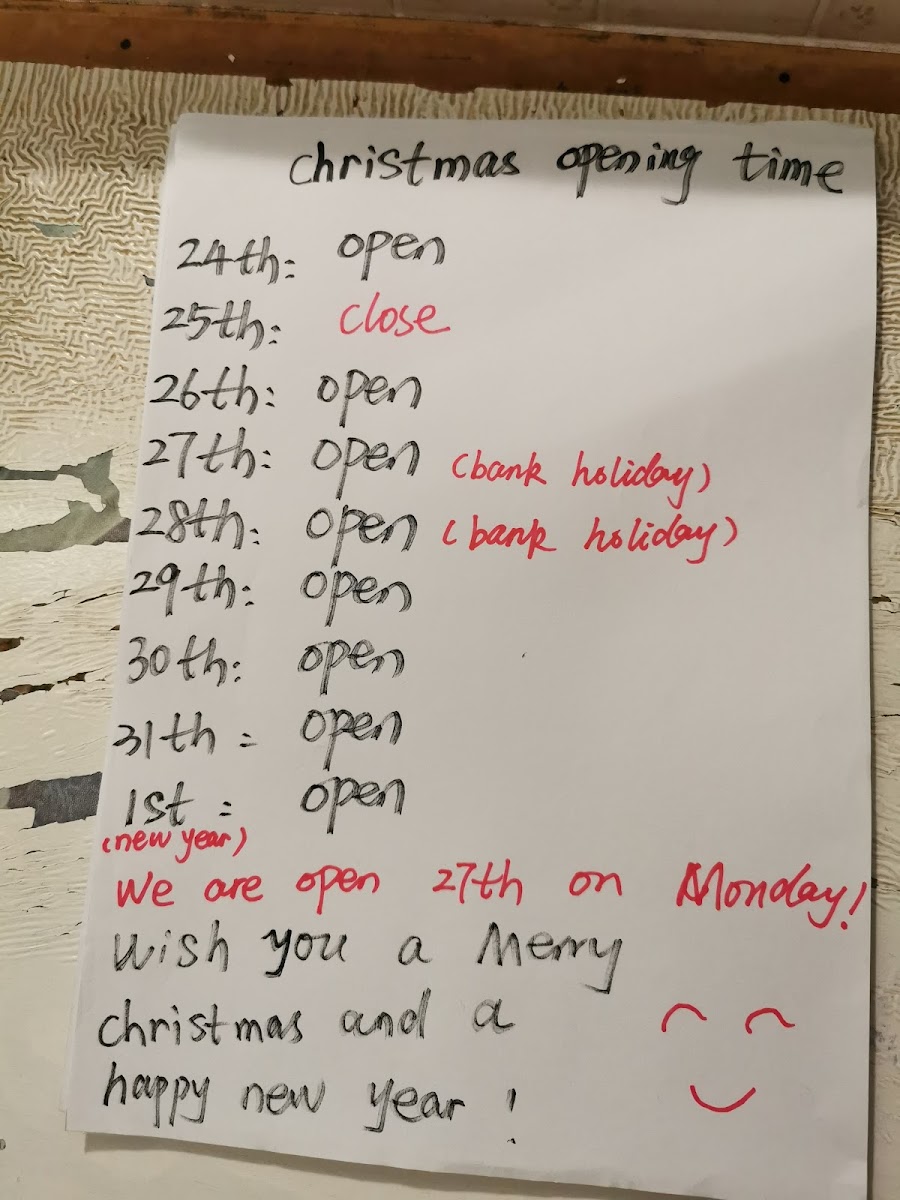 christmas opening time
24th: open
25th: close
26th: open
27th: open (bank holiday)
28th: open (bank holiday)
29th: open
30th: open
31th: open
1st: open
(new year)
We are open 27th on Monday!
Wish you a Merry
christmas and a
happy new year!